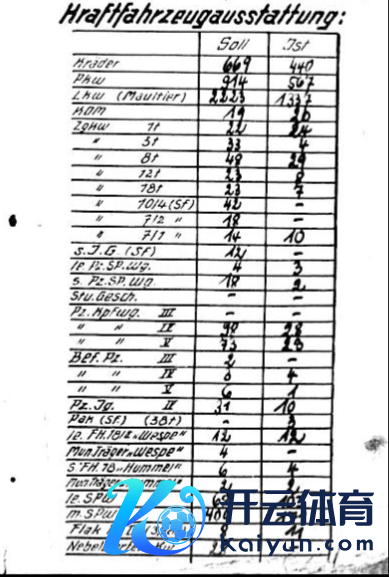 Kraftfahrzeugausstattung:
Soll Ist
Kräder 669 440
Pkw 914 567
Lkw (Maultier) 2223 1337
KOM 19 26
Zgkw 1t 22 24
" 5t 33 4
" 8t 48 29
" 12t 23 8
" 18t 23 7
" 10/4 (SF) 42 -
" 7/2 " 18 -
" 7/1 " 14 10
s.I.G. (SF) 12 -
le Pz.Sp.Wg. 4 3
s. Pz.Sp.Wg. 18 2
Stu.Gesch. - -
Pz. Kpfwg. III - -
" " IV 98
" " V 73 23
Bef. Pz. III 2 -
" " IV 4
" " V 6 1
Pz. Jg. IV 31 10
Pak (SF.) (38t) - 3
le. FH. 18/2 „Wespe" 12 12
Mun.Träger „Wespe" 4 -
s. FH. 18 „Hummel" 6 4
Mun.Träger 2 2
le. SPW
m. SPW
Flak 11
开云体育
Kaiyun.com